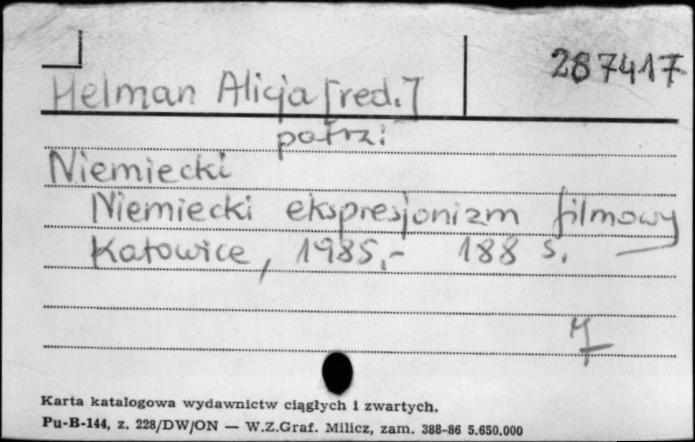 287417
Helman Alicja [red.]
patrz:
Niemiecki
Niemiecki ekspresjonizm filmowy
Katowice, 1985.- 188 s.
Karta katalogowa wydawnictw ciągłych i zwartych.
Pu-B-144, z. 228/DW/ON — W.Z.Graf. Milicz, zam. 388-86 5.650.000